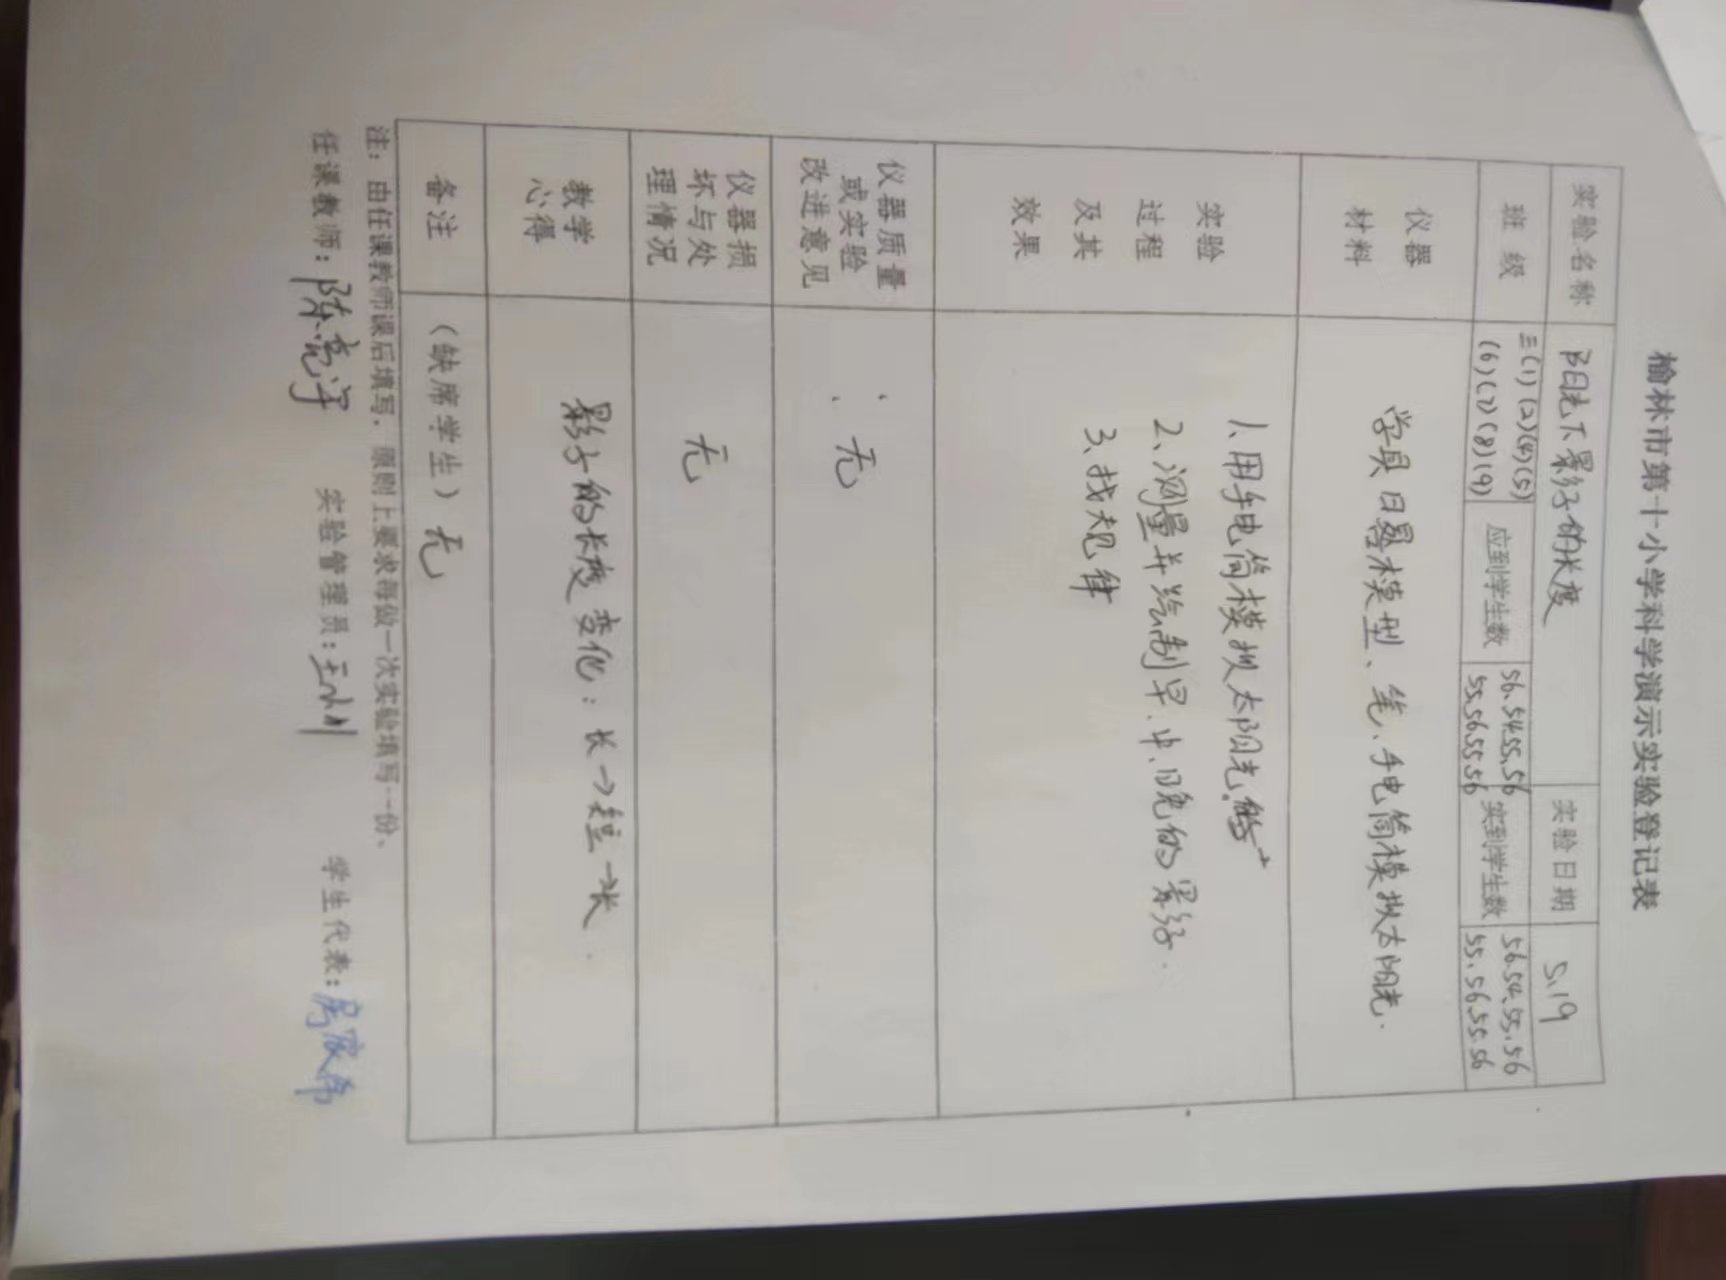 榆林市第十小学科学演示实验登记表
实验名称 阳光下影子的长度 实验日期 5.19
班级 三(1)(2)(4)(5) 应到学生数 56.54.55.56 实到学生数 56.54.55.56
(6)(7)(8)(9) 55.56.55.56 55.56.55.56
仪器
材料
学具日晷模型、笔、手电筒模拟太阳光.
实验
过程
及其
效果
1、用手电筒模拟太阳光.
2、测量并绘制早、中、晚的影子.
3、找规律
仪器质量
或实验
改进意见
无
仪器损
坏与处
理情况
无
教学
心得
影子的长度变化：长→短→长.
备注 （缺席学生）无
注：由任课教师课后填写，原则上要求每做一次实验填写一份、
任课教师：陈亮宇 实验管理员：王小利 学生代表：